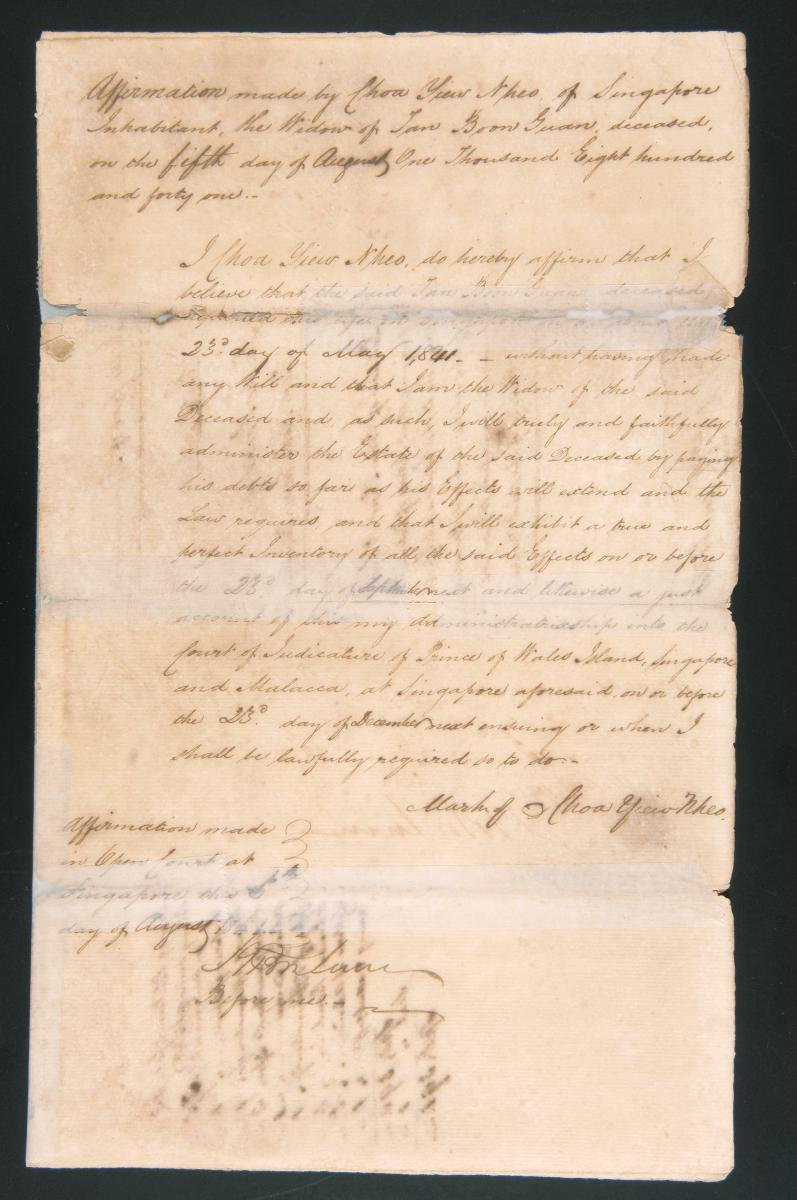 Affirmation made by Choa Yiew Nheo, of Singapore
Inhabitant, the Widow of Tan Boon Guan, deceased,
on the fifth day of August One Thousand Eight hundred
and forty one.-
I Choa Yiew Nheo, do hereby affirm that I
believe that the said Tan Boon Guan, deceased,
departed this life in Singapore on or about the
23.d day of May 1,841. - without having made
any Will and that I am the Widow of the said
Deceased and as such, I will truly and faithfully
administer the Estate of the said Deceased by paying
his debts so far as his Effects will extend and the
Law requires, and that I will exhibit a true and
perfect Inventory of all the said Effects on or before
the 23.d day of September next and likewise a just
account of this my Administratrixship into the
Court of Judicature of Prince of Wales Island, Singapore
and Malacca, at Singapore aforesaid, on or before
the 23.d day of December next ensuing or when I
shall be lawfully required so to do.-
Mark of Choa Yiew Nheo.
Affirmation made
in Open Court at
Singapore this 5th
day of August
Before me.-